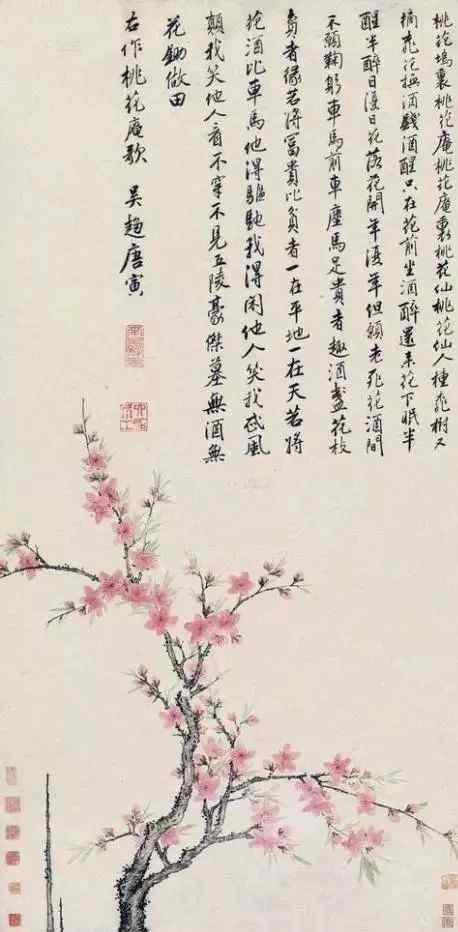 桃花塢裏桃花庵桃花庵裏桃花仙桃花仙人種桃樹又
摘桃花換酒錢酒醒只在花前坐酒醉還来花下眠半
醒半醉日復日花落花開年復年但願老死花酒間
不願鞠躬車馬前車塵馬足貴者趣酒盞花枝
貧者緣若將富貴比貧者一在平地一在天若將
花酒比車馬他得驅馳我得閑他人笑我忒風
顛我笑他人看不穿不見五陵豪傑墓無酒無
花鋤做田
右作桃花庵歌 吳趨唐寅